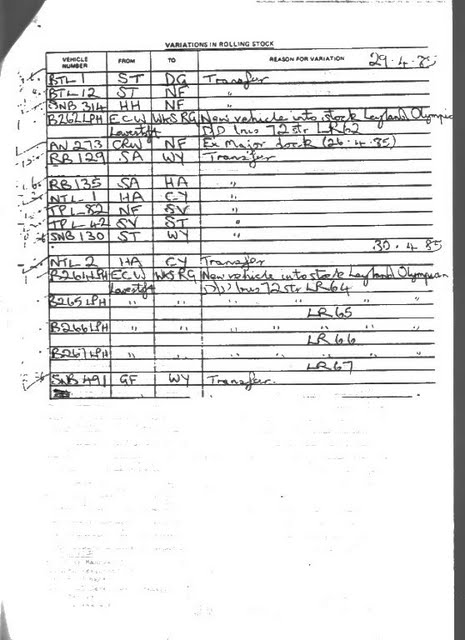 VARIATIONS IN ROLLING STOCK
29.4.85
VEHICLE NUMBER FROM TO REASON FOR VARIATION
BTL 1 ST DG Transfer
BTL 12 ST NF "
SNB 314 HH NF "
B262LPH E C W WKS RG New vehicle into stock Leyland Olympian
Lowestoft D/D bus 72 str LR62
AN 273 CRW NF Ex Major dock (26.4.85)
RB 129 SA WY Transfer
RB 135 SA HA "
NTL 1 HA CY "
TPL 82 NF SV "
TPL 42 SV ST "
SNB 130 ST WY "
30.4.85
NTL 2 HA CY Transfer
B264LPH E C W WKS RG New vehicle into stock Leyland Olympian
Lowestoft D/D bus 72 str LR64
B265LPH " " " " " "
LR65
B266LPH " " " " " "
LR66
B267LPH " " " " " "
LR67
SNB 491 GF WY Transfer.